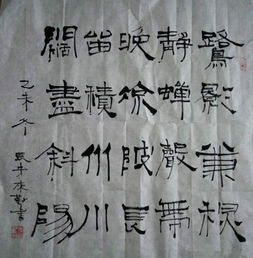 鷺影兼秋
靜蟬聲帶
晚涼陂長
留積水川
闊盡斜陽
乙未冬
書